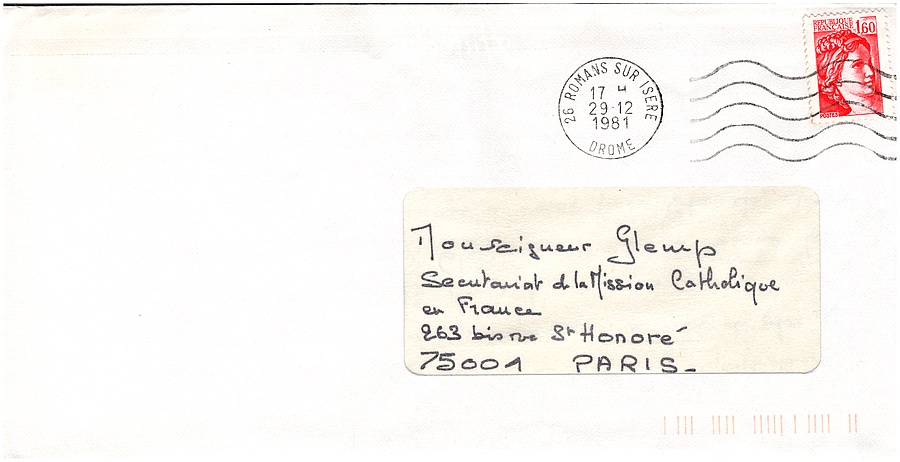 REPUBLIQUE
FRANÇAISE 1,60
POSTES
26 ROMANS SUR ISERE
17 H
29-12
1981
DROME
Monseigneur Glemp
Secretariat de la Mission Catholique
en France
263 bis rue St Honoré
75001 PARIS_